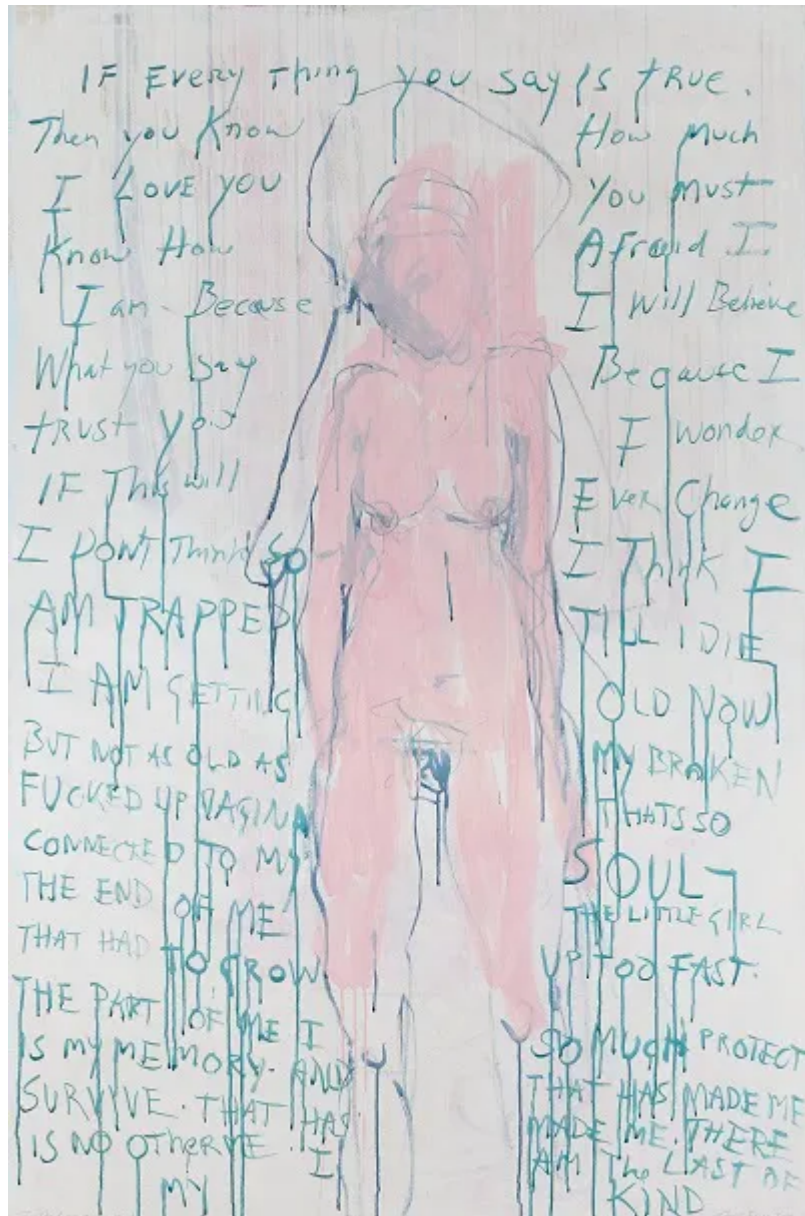 IF Every Thing you say Is true.
Then you Know How Much
I LOVE YOU You Must
Know How Afraid I
I am Because I Will Believe
What you Say Because I
trust you I wonder
IF This will Ever Change
I Dont Think So I Think I
AM TRAPPED TILL I DIE
I AM GETTING OLD NOW
BUT NOT AS OLD AS MY BROKEN
FUCKED UP VAGINA THATS SO
CONNECTED TO MY SOUL
THE END OF ME THE LITTLE GIRL
THAT HAD TO GROW UP TOO FAST.
THE PART OF ME I SO MUCH PROTECT
IS MY MEMORY. AND THAT HAS MADE ME
SURVIVE. THAT HAS MADE ME. THERE
IS NO OTHER ME I AM The LAST OF
MY KIND